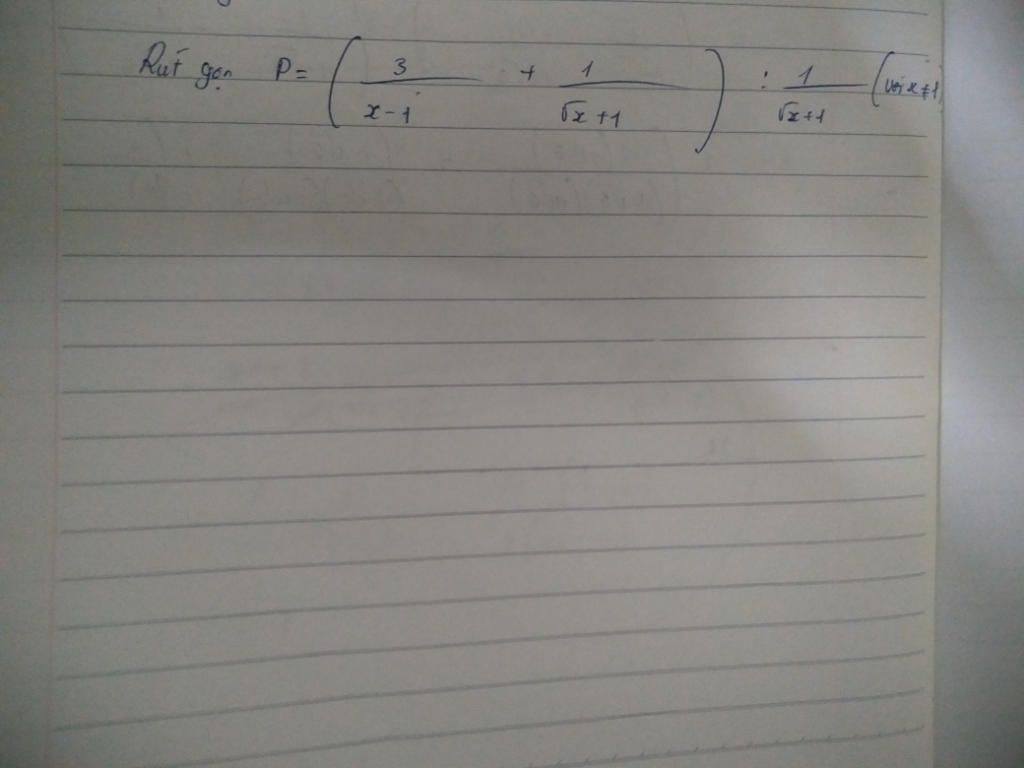 Rút gọn P = ( 3/(x-1) + 1/(√x+1) ) : 1/(√x+1) (với x≠1)